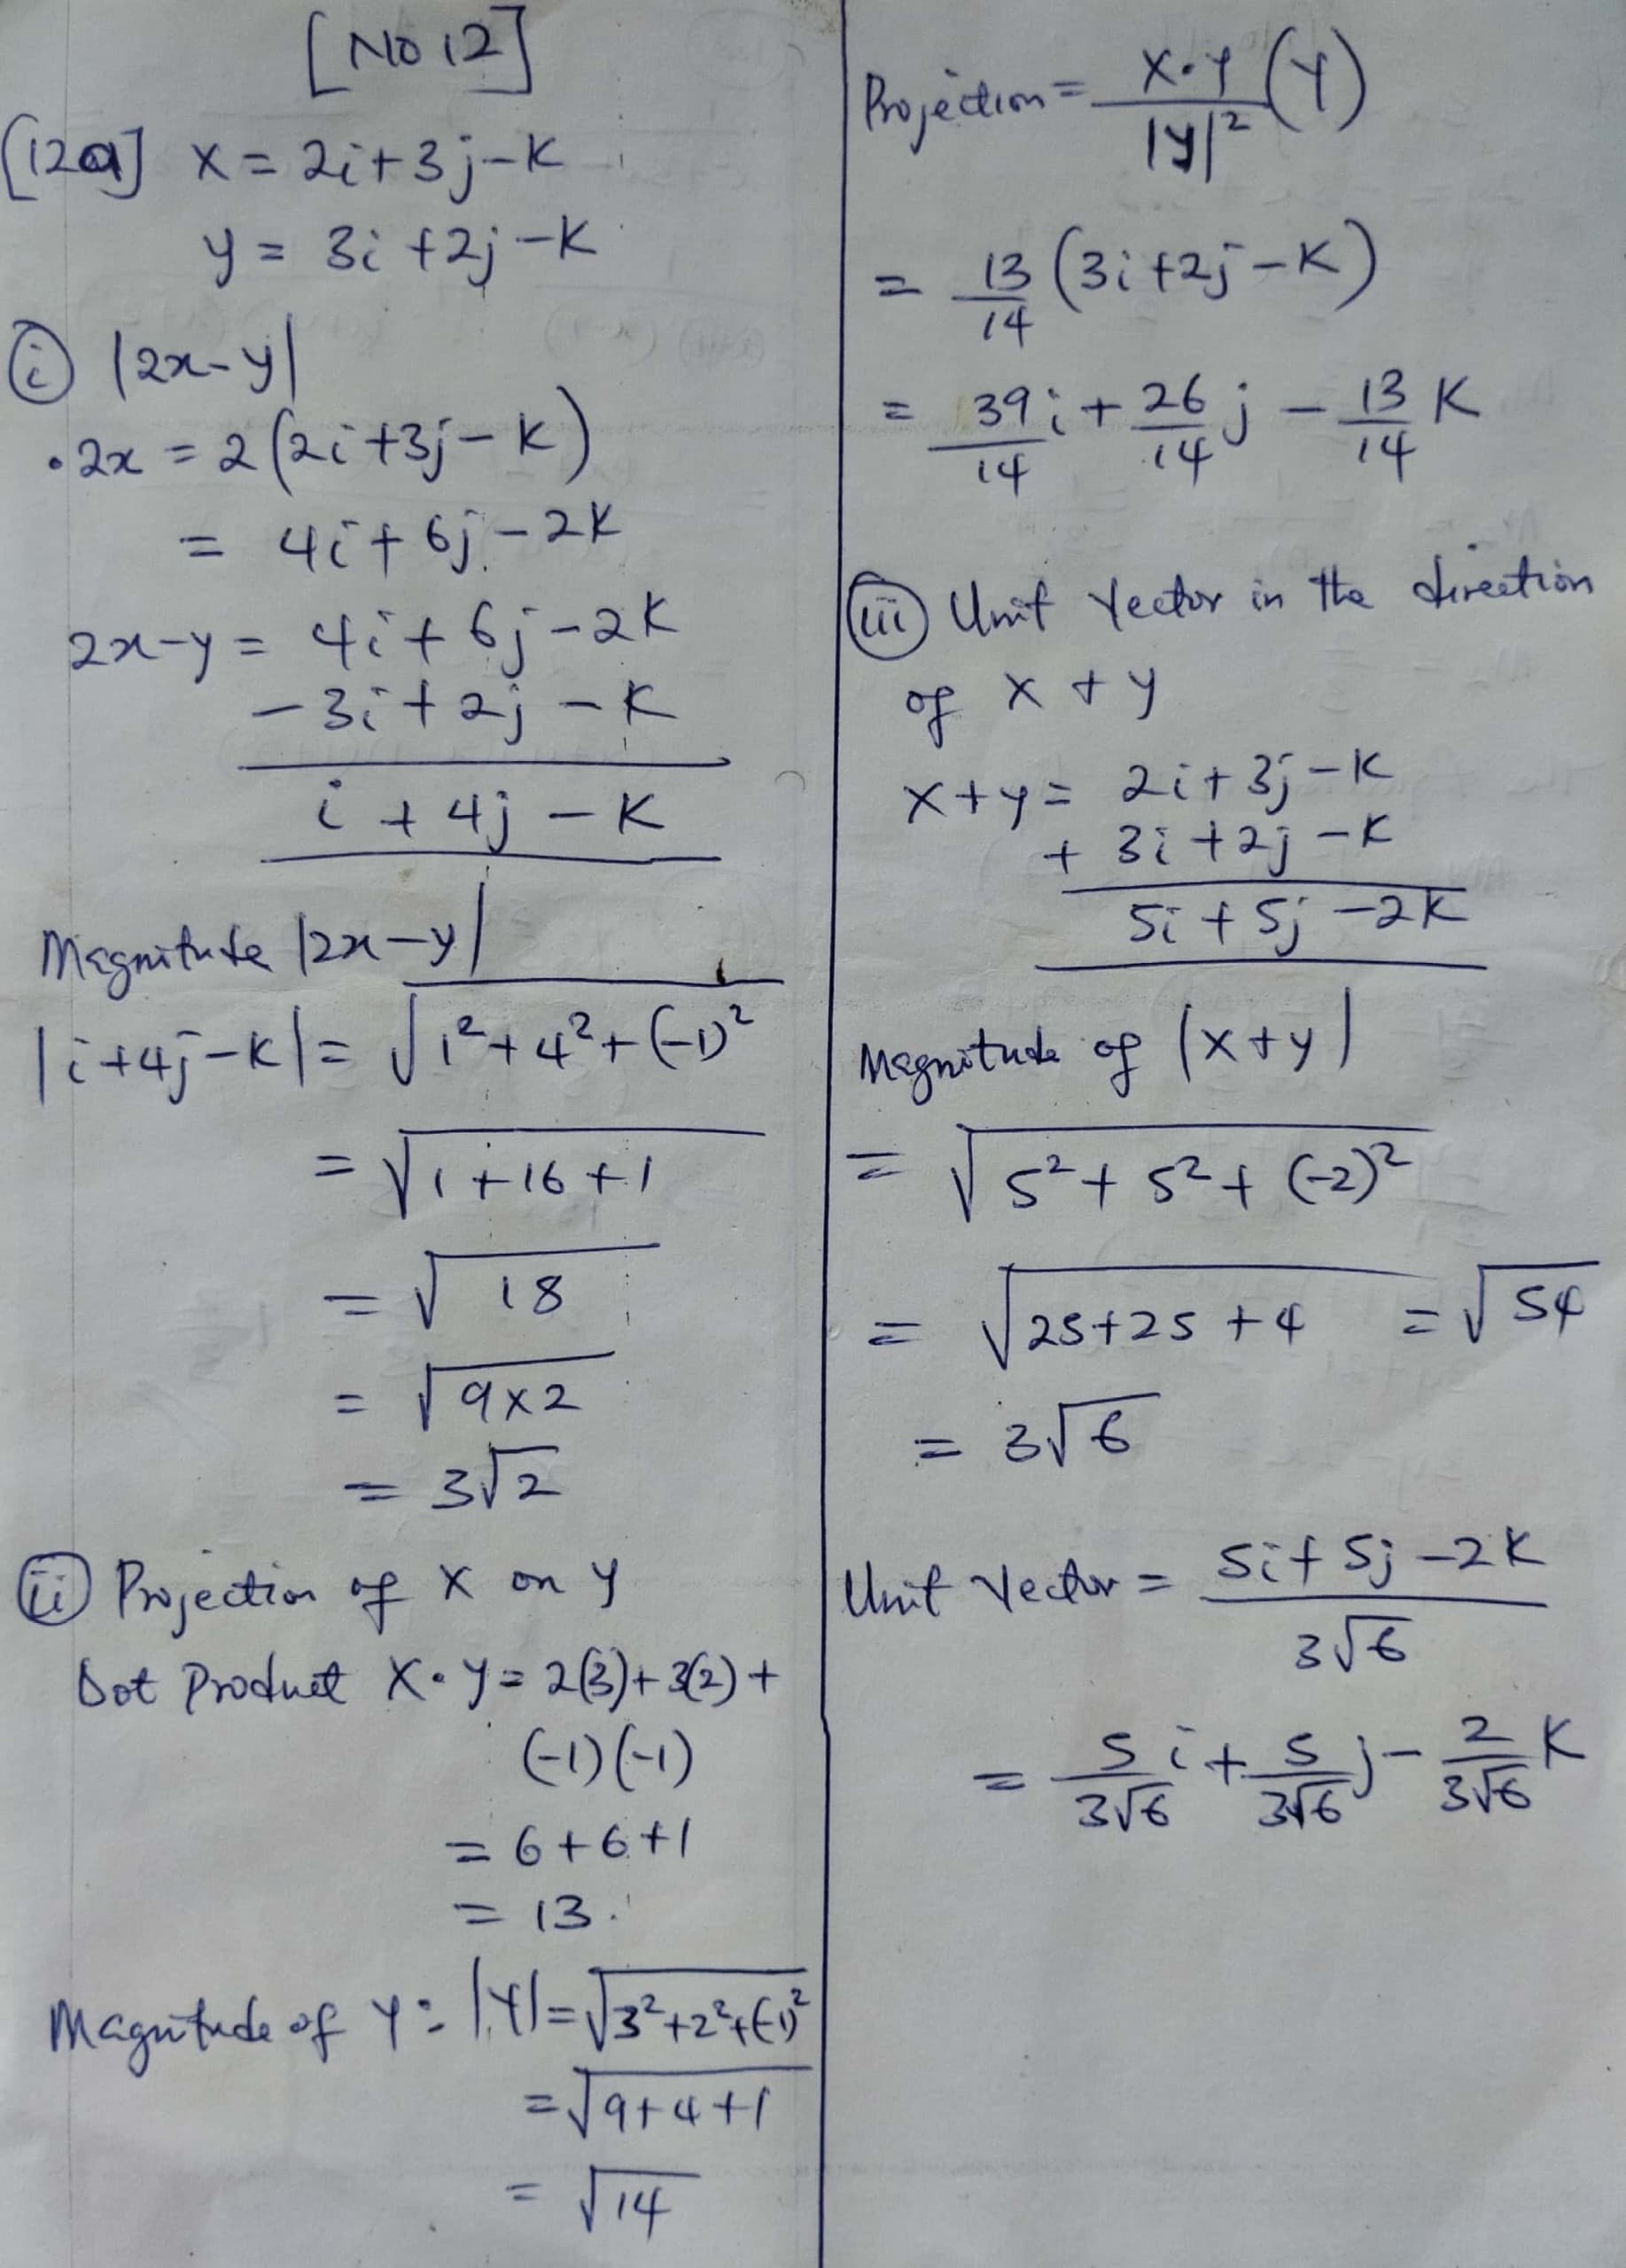 [No 12]
[12a] x = 2i + 3j - K
y = 3i + 2j - K
(i) |2x - y|
• 2x = 2(2i + 3j - K)
= 4i + 6j - 2K
2x - y = 4i + 6j - 2K
- 3i + 2j - K
i + 4j - K
Magnitude |2x - y|
|i + 4j - K| = √(1² + 4² + (-1)²
= √1 + 16 + 1
= √18
= √9 × 2
= 3√2
(ii) Projection of X on Y
Dot Product X • Y = 2(3) + 3(2) +
(-1)(-1)
= 6 + 6 + 1
= 13.
Magnitude of Y: |Y| = √3² + 2² + (-1)²
= √9 + 4 + 1
= √14
Projection = X • Y / |y|² (Y)
= 13/14 (3i + 2j - K)
= 39/14 i + 26/14 j - 13/14 K
(iii) Unit Vector in the direction
of X + Y
X + Y = 2i + 3j - K
+ 3i + 2j - K
5i + 5j - 2K
Magnitude of |X + Y|
= √5² + 5² + (-2)²
= √25 + 25 + 4 = √54
= 3√6
Unit Vector = 5i + 5j - 2K / 3√6
= 5/3√6 i + 5/3√6 j - 2/3√6 K